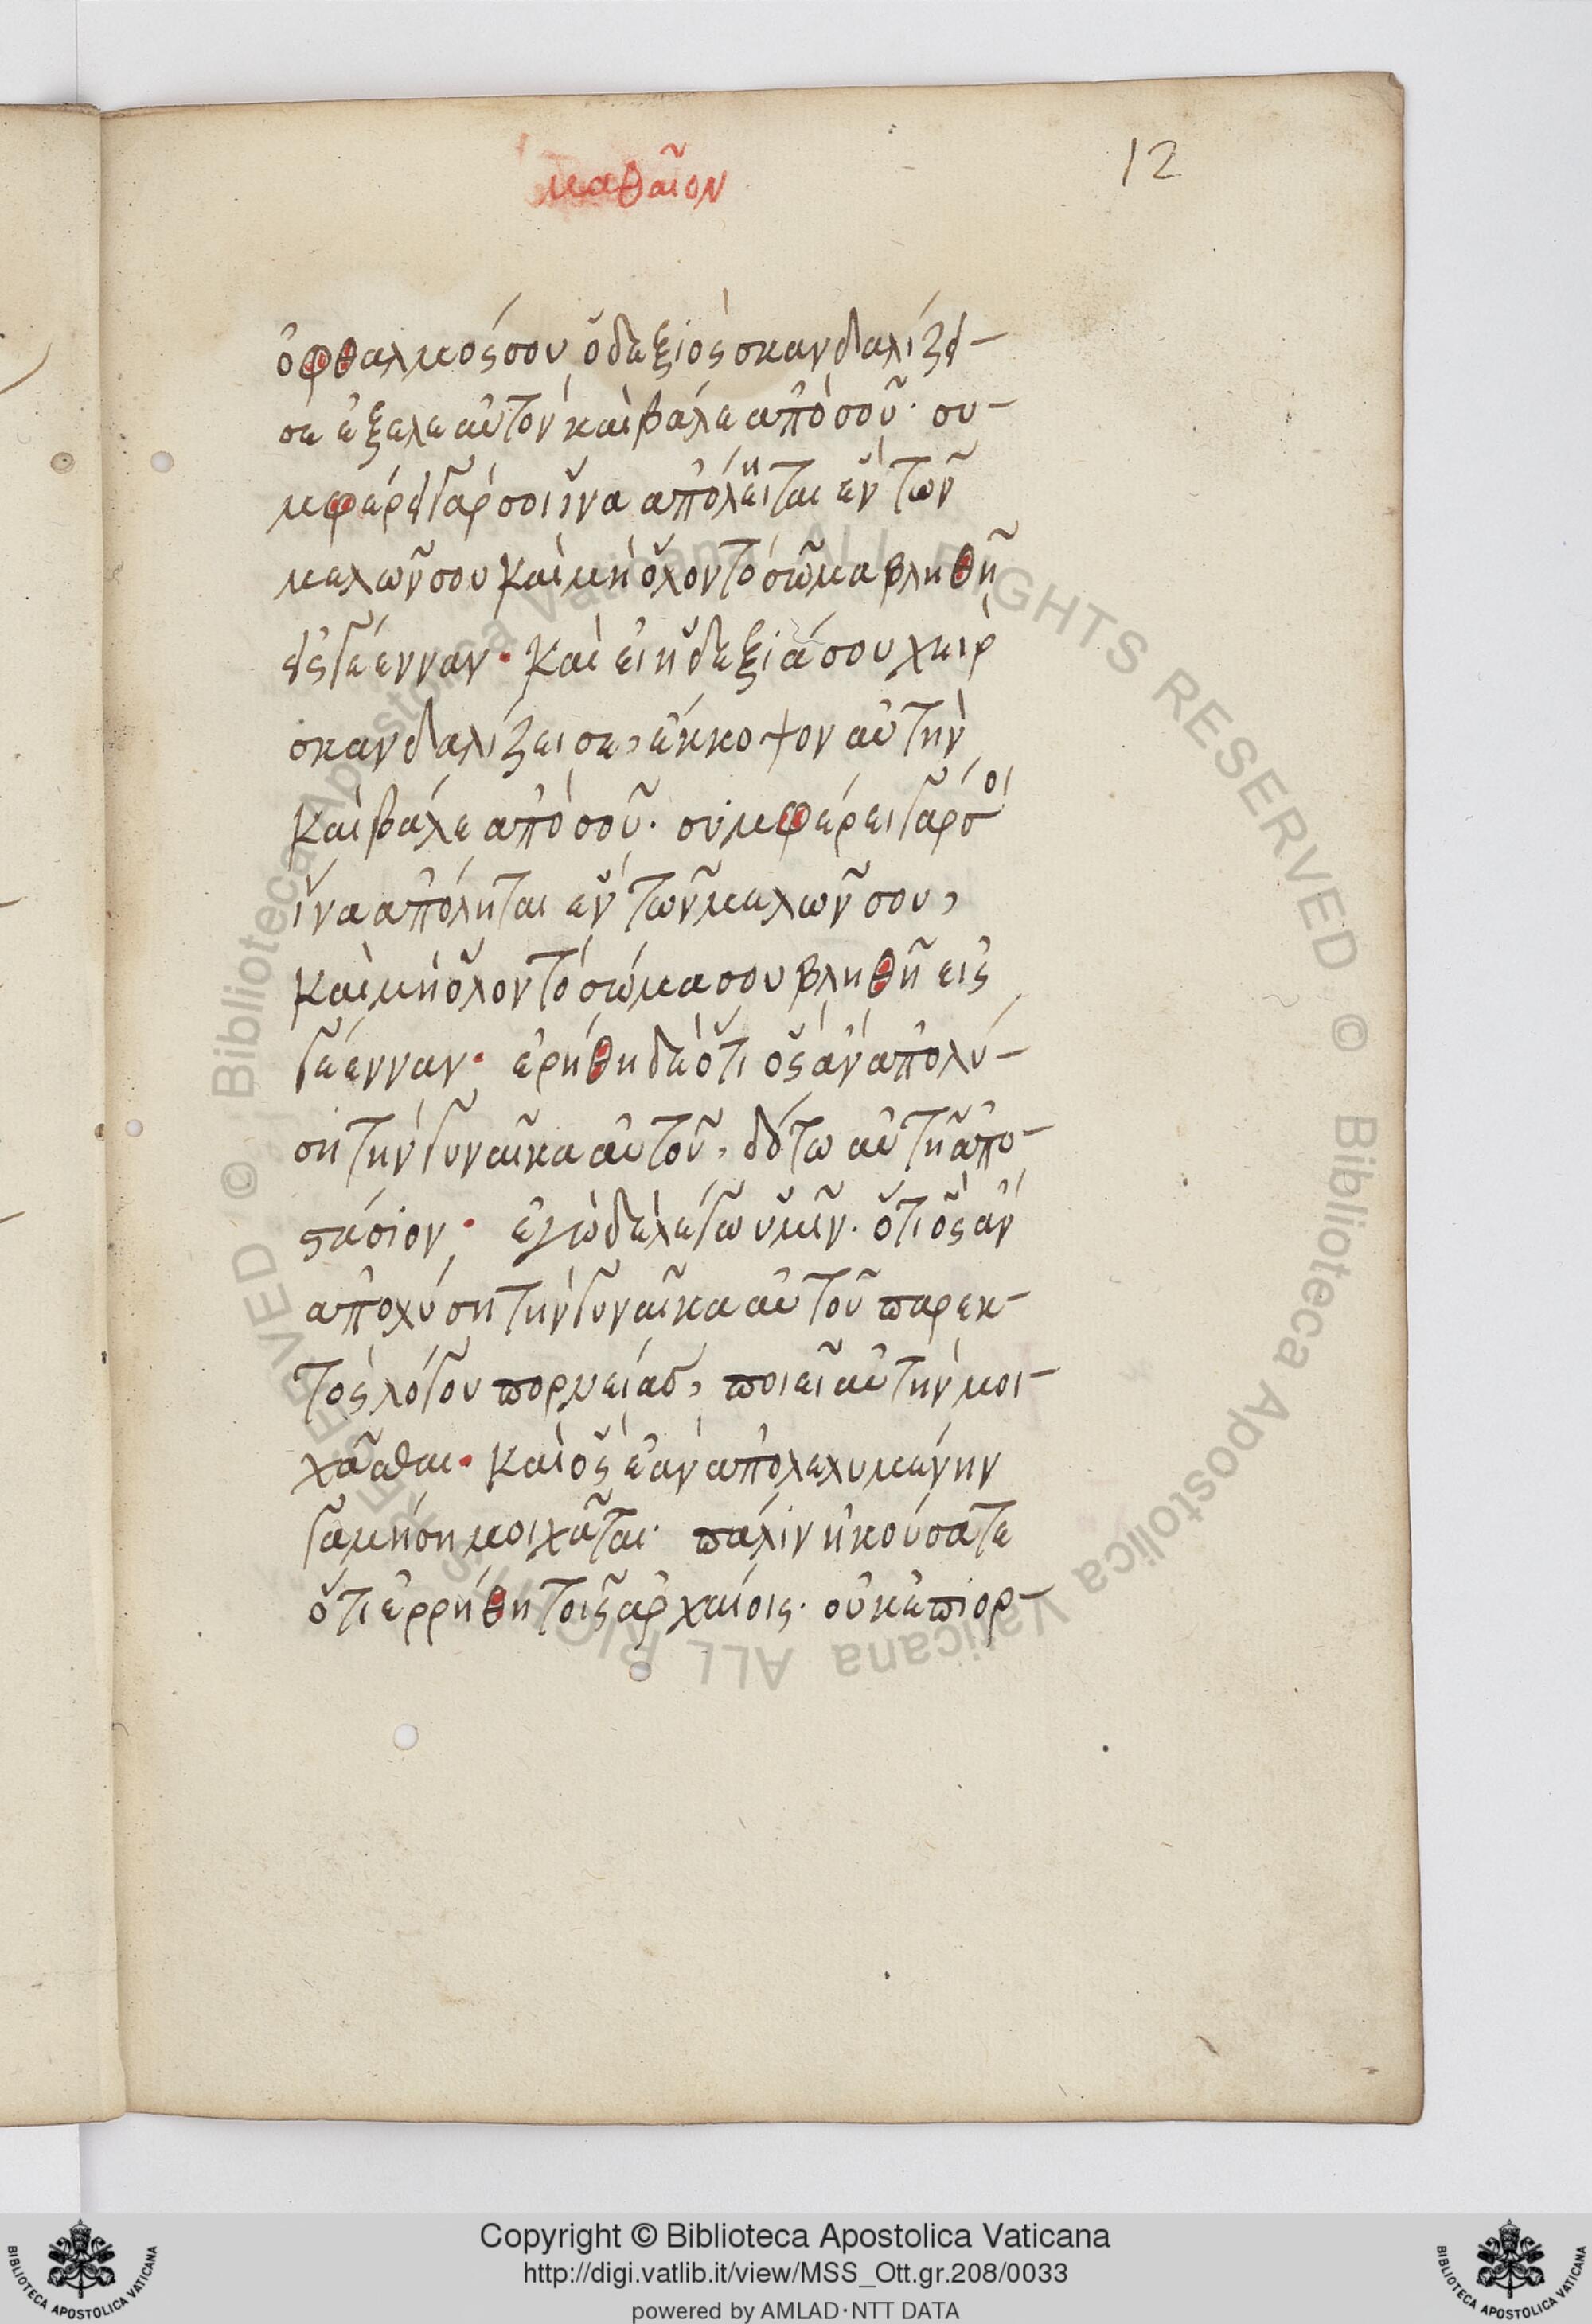 μαθαῖον
12
ὀφθαλμός σου ὁ δεξιὸς σκανδαλίζει
σε ἔξελε αὐτὸν καὶ βάλε ἀπὸ σοῦ· συ-
μφέρει γάρ σοι ἵνα ἀπόληται ἓν τῶν
μελῶν σου καὶ μὴ ὅλον τὸ σῶμα βληθῆ
εἰς γέενναν· καὶ εἰ ἡ δεξιά σου χεὶρ
σκανδαλίζει σε, ἔκκοψον αὐτὴν
καὶ βάλε ἀπὸ σοῦ· συμφέρει γάρ σοι
ἵνα ἀπόληται ἓν τῶν μελῶν σου,
καὶ μὴ ὅλον τὸ σώμα σου βληθῆ εἰς
γέενναν· ἐρήθη δὲ ὅτι ὃς ἂν ἀπολύ-
ση τὴν γυναῖκα αὐτοῦ, δότω αὐτῆ ἀπο-
στάσιον· ἐγὼ δὲ λέγω ὑμῖν· ὅτι ὃς ἂν
ἀπολύση τὴν γυναῖκα αὐτοῦ παρεκ-
τὸς λόγου πορνείας, ποιεῖ αὐτὴν μοι-
χᾶσθαι· καὶ ὃς ἐὰν ἀπολελυμένην
γαμήση μοιχᾶται· πάλιν ἠκούσατε
ὅτι ἐρρήθη τοῖς ἀρχαίοις· οὐκ ἐπιορ-
Copyright © Biblioteca Apostolica Vaticana
http://digi.vatlib.it/view/MSS_Ott.gr.208/0033
powered by AMLAD·NTT DATA
BIBLIOTECA APOSTOLICA VATICANA
BIBLIOTECA APOSTOLICA VATICANA
© Biblioteca Apostolica Vaticana ALL RIGHTS RESERVED © Biblioteca Apostolica Vaticana ALL RIGHTS RESERVED